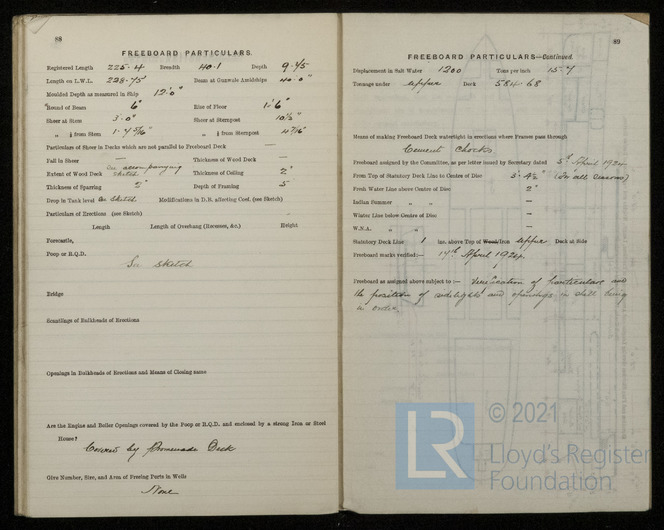 88
FREEBOARD PARTICULARS.
Registered Length 225·4 Breadth 40·1 Depth 9·45
Length on L.W.L. 228·75' Beam at Gunwale Amidships 40·0"
Moulded Depth as measured in Ship 12'·0"
Round of Beam 6" Rise of Floor 1'·6"
Sheer at Stem 3'·0" Sheer at Sternpost 10½"
" ⅛ from Stem 1'·4 5/16" " ⅛ from Sternpost 4 7/16"
Particulars of Sheer in Decks which are not parallel to Freeboard Deck —
Fall in Sheer — Thickness of Wood Deck —
Extent of Wood Deck on accompanying sketch Thickness of Ceiling 2"
Thickness of Sparring 2" Depth of Framing 5
Drop in Tank level on sketch Modifications in D.B. affecting Coef. (see Sketch)
Particulars of Erections (see Sketch)
Length Length of Overhang (Recesses, &c.) Height
Forecastle,
Poop or R.Q.D.
See sketch
Bridge
Scantlings of Bulkheads of Erections
Openings in Bulkheads of Erections and Means of Closing same
Are the Engine and Boiler Openings covered by the Poop or R.Q.D. and enclosed by a strong Iron or Steel
House?
Covered by Promenade Deck
Give Number, Size, and Area of Freeing Ports in Wells
None
89
FREEBOARD PARTICULARS—Continued.
Displacement in Salt Water 1200 Tons per inch 15·7
Tonnage under upper Deck 584·68
Means of making Freeboard Deck watertight in erections where Frames pass through
Cement Chocks
Freeboard assigned by the Committee, as per letter issued by Secretary dated 5th April 1924
From Top of Statutory Deck Line to Centre of Disc 3'·4½" (for all seasons)
Fresh Water Line above Centre of Disc 2"
Indian Summer " " —
Winter Line below Centre of Disc —
W.N.A. " " —
Statutory Deck Line 1 ins. above Top of Wood/Iron upper Deck at Side
Freeboard marks verified:— 17th April 1924
Freeboard as assigned above subject to:— Verification of particulars and
the position of sidelights and openings in shell being
in order.
© 2021
LR
Lloyd's Register
Foundation